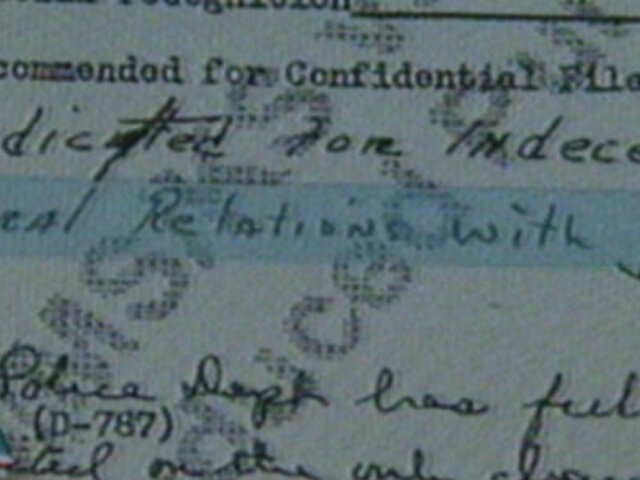 recognition
commended for Confidential File
dicted for Indece
Relations with
Police Dept has full
(D-787)
on the only